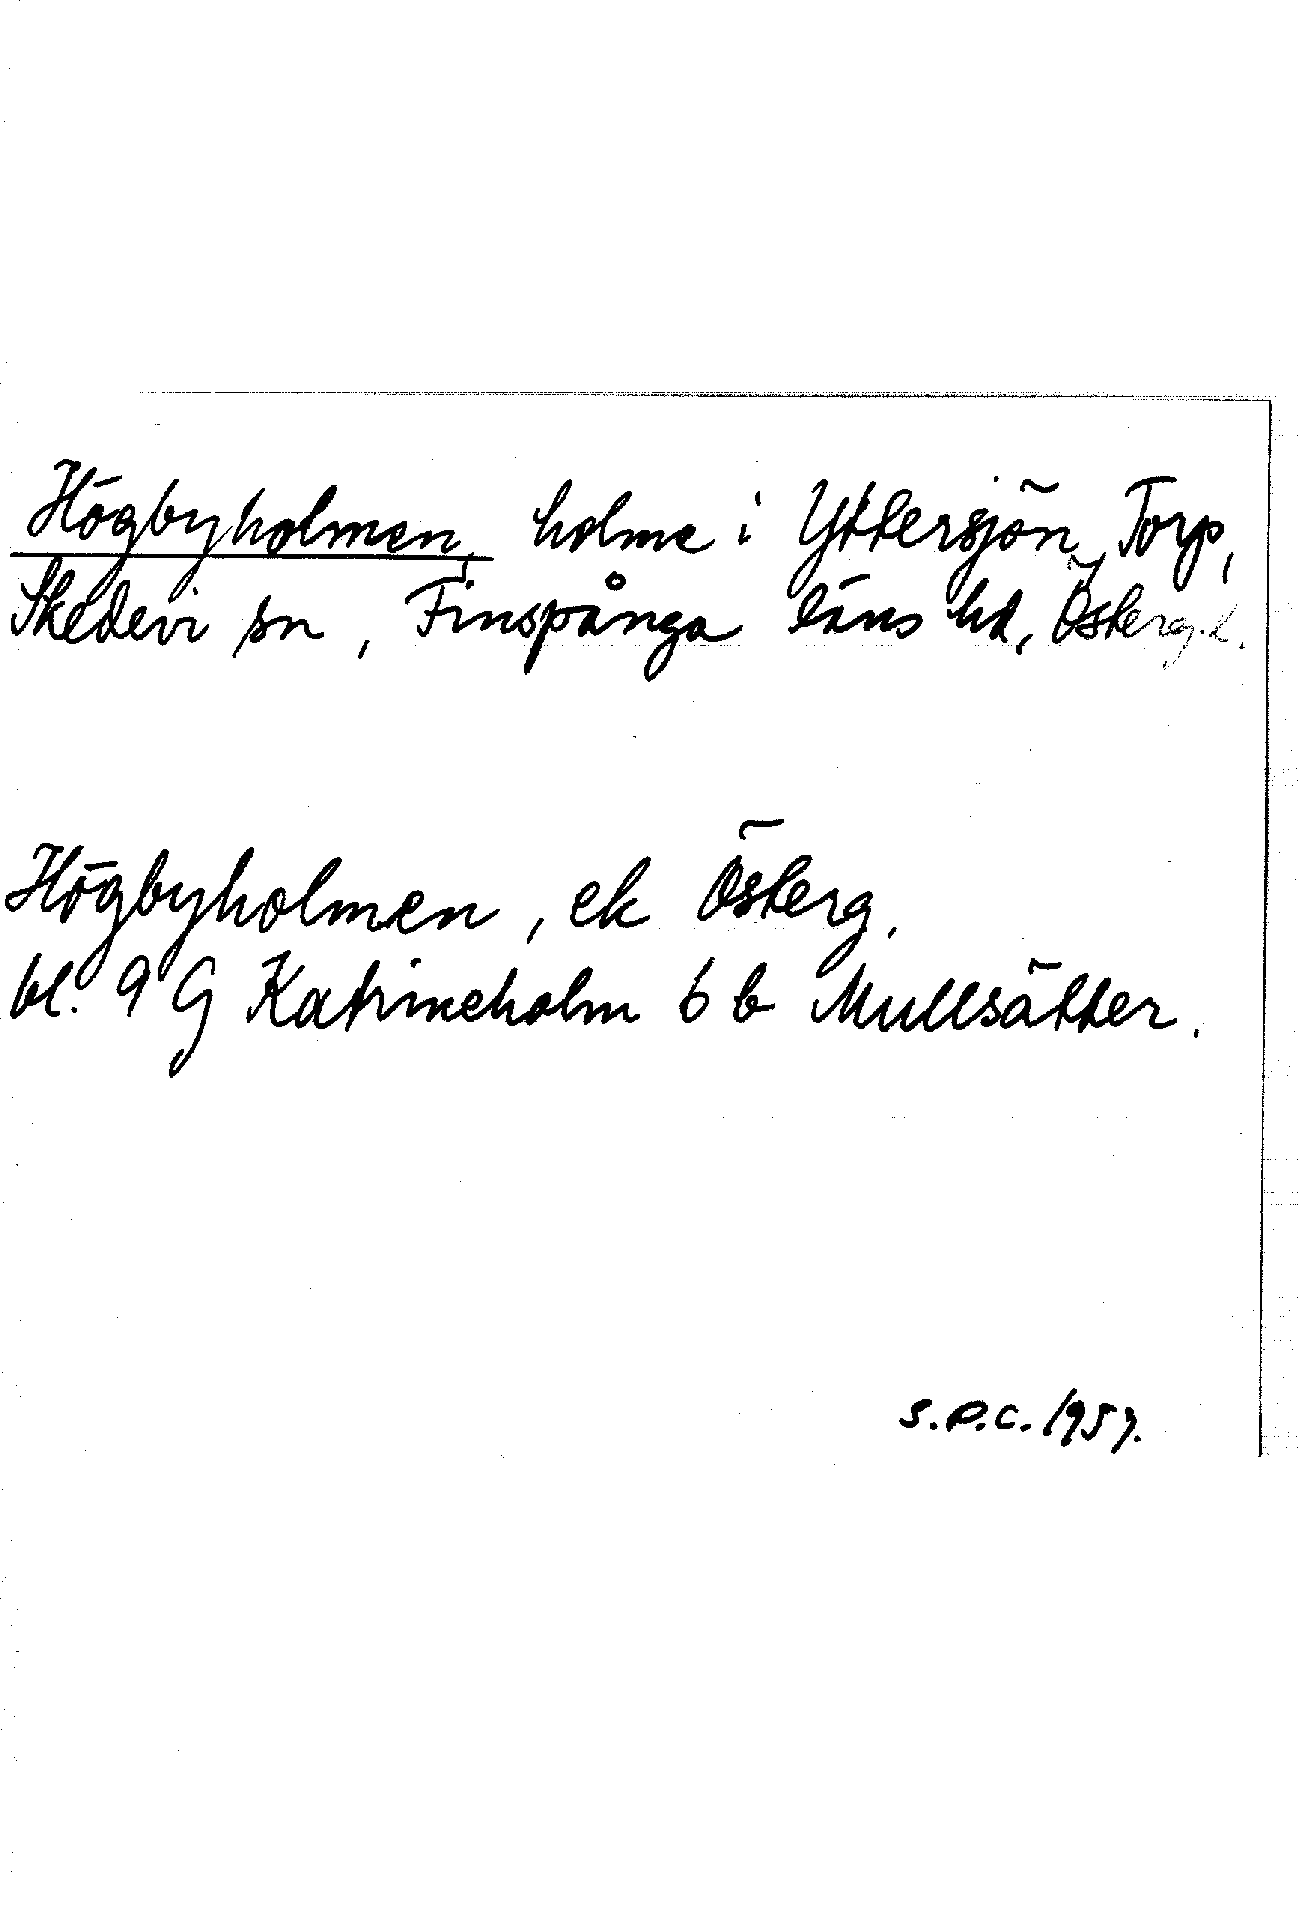 Högbyholmen, holme i Yttersjön, Torp,
Skedevi sn, Finspånga läns hd, Österg.l.
Högbyholmen, ek Österg.
bl. 9 G Katrineholm 6 b Mullsätter.
S.P.C. 1957.